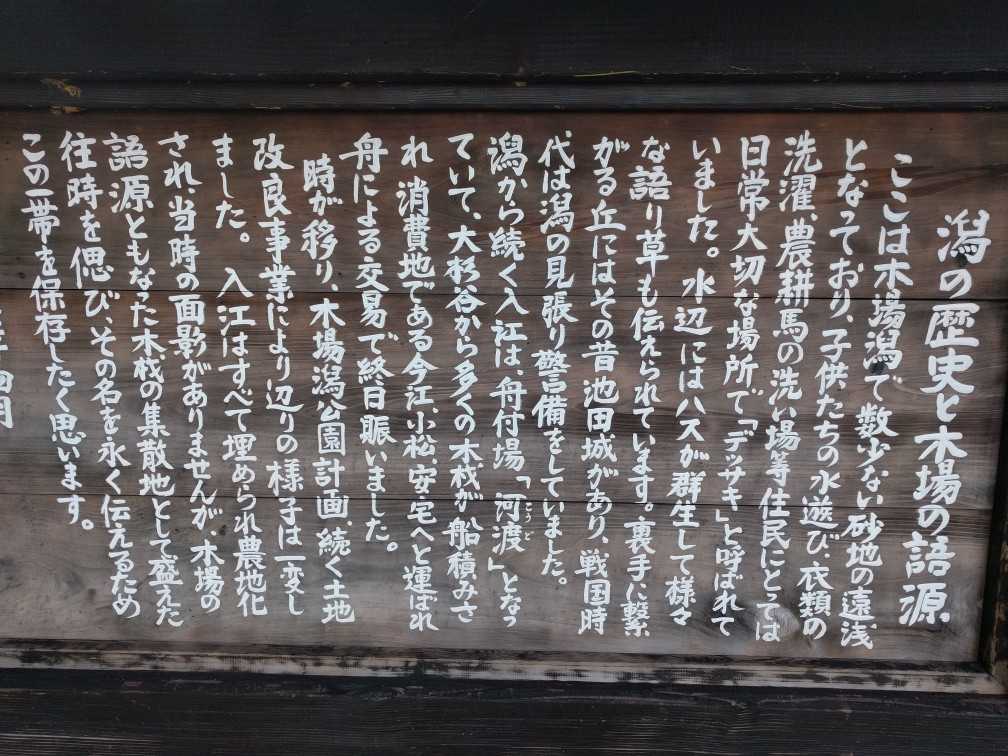 潟の歴史と木場の語源
ここは木場潟で数少ない砂地の遠浅
となっており、子供たちの水遊び、衣類の
洗濯、農耕馬の洗い場等住民にとっては
日常大切な場所で「デッサキ」と呼ばれて
いました。水辺にはハスが群生して様々
な語り草も伝えられています。裏手に繋
がる丘にはその昔池田城があり、戦国時
代は潟の見張り警備をしていました。
潟から続く入江は、舟付場「河渡」となっ
こうど
ていて、大杉谷から多くの木材が船積みさ
れ消費地である今江、小松、安宅へと運ばれ
舟による交易で終日賑いました。
時が移り、木場潟公園計画、続く土地
改良事業により辺りの様子は一変し
ました。入江はすべて埋められ農地化
され、当時の面影がありませんが、木場の
語源ともなった木材の集散地として盛えた
往時を偲び、その名を永く伝えるため
この一帯を保存したく思います。